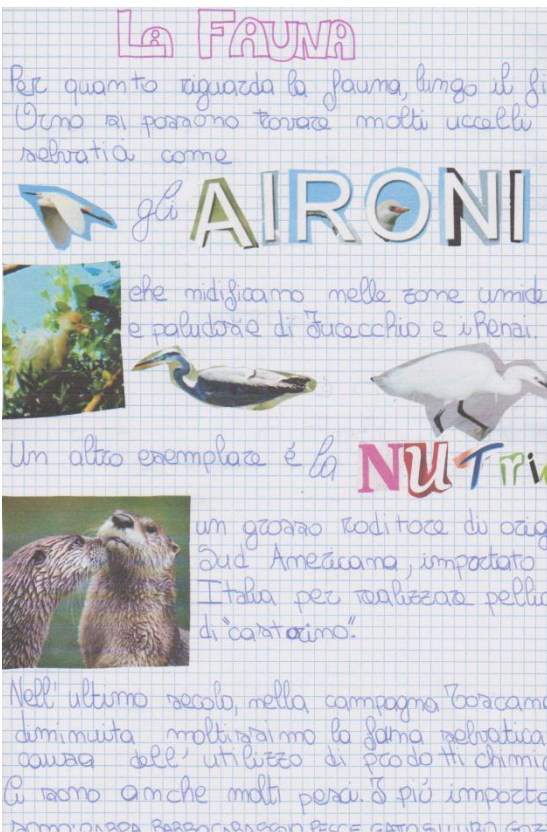 LA FAUNA
Per quanto riguarda la fauna, lungo il fi
Orno si possono trovare molti uccelli
selvatici come
gli AIRONI
che nidificano nelle zone umide
e paludose di Fucecchio e i Renai.
Un altro esemplare é la NUTri
un grosso roditore di orig
Sud Americana, importato
Italia per realizzare pellic
di "castorino".
Nell' ultimo secolo, nella campagna Toscana
diminuita moltissimo la fauna selvatica
causa dell' utilizzo di prodotti chimic
Ci sono anche molti pesci. I più importa